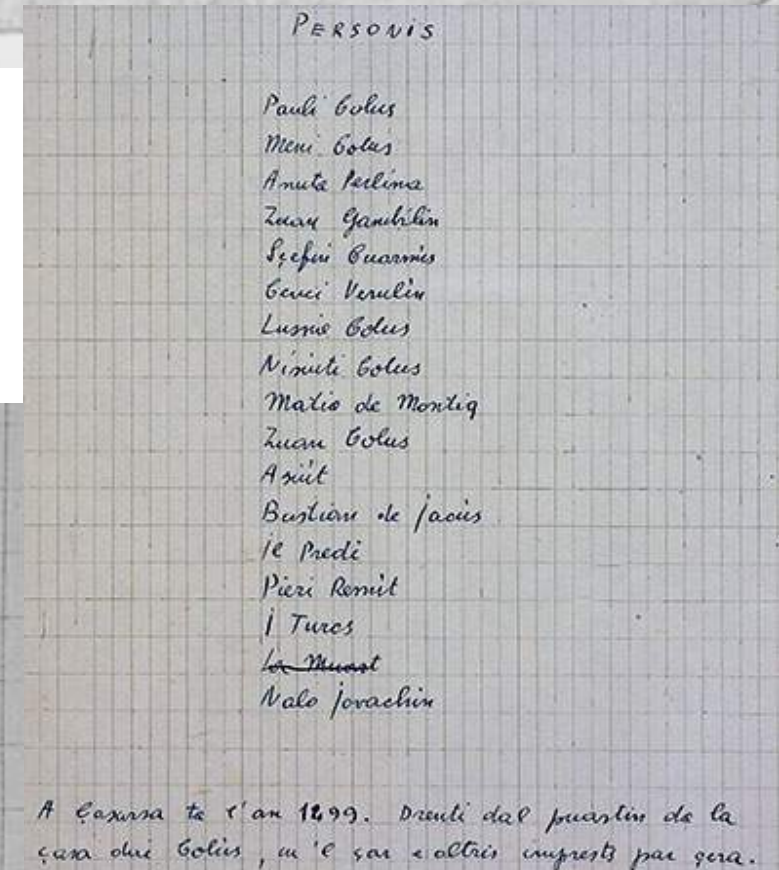 PERSONIS
Pauli Colus
Meni Colus
Anuta Perlina
Zuan Gambilin
Sçefin Cuarnis
Cenci Verulin
Lussie Colus
Nisiuti Colus
Matio de Montig
Zuan Colus
Asiut
Bastian de Jacùs
il Predi
Pieri Remit
I Turcs
La Muart
Nalo Jovachin
A Çasarsa ta l'an 1499. Drenti dal puartin da la
çasa dai Colùs, cu'l çar e altris imprests par çera.